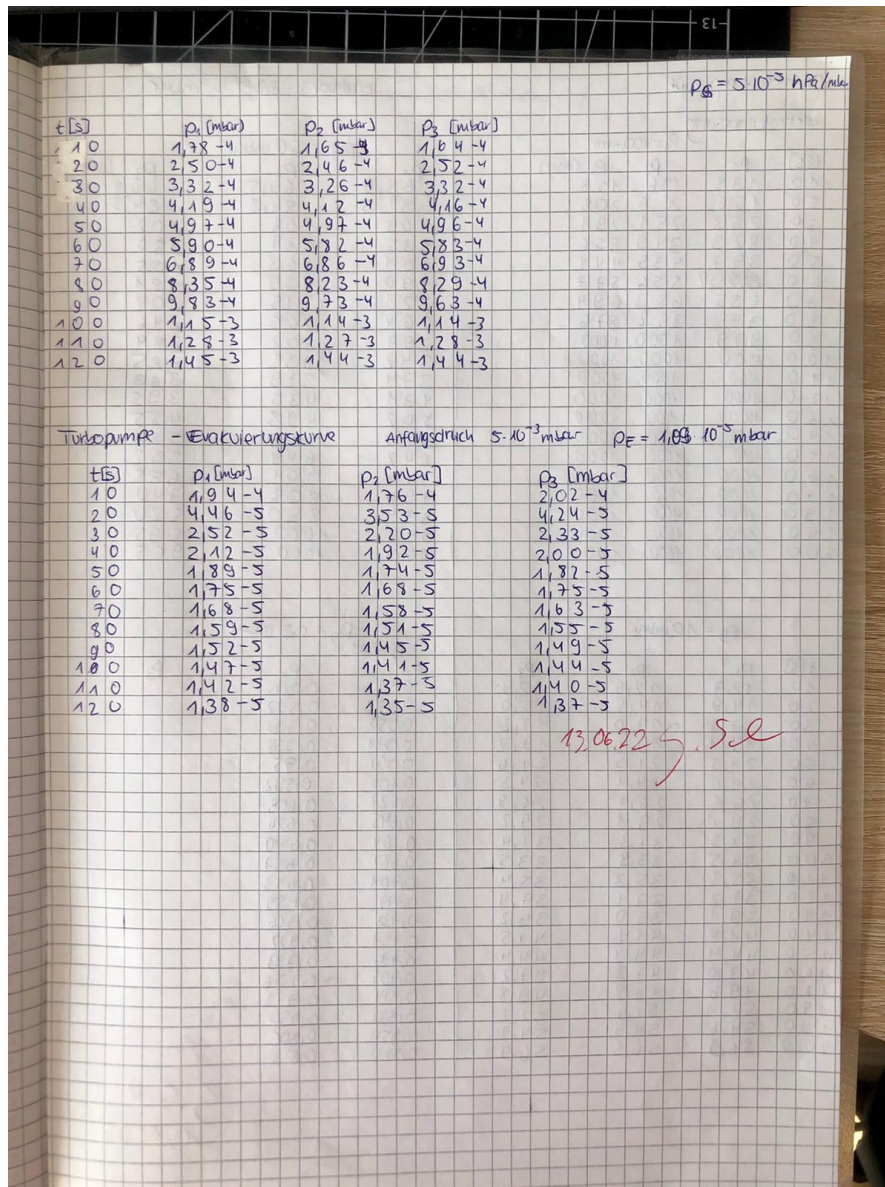 13
pG = 5·10⁻⁵ hPa/mbar
t[s] p₁ [mbar) p₂ [mbar] p₃ [mbar]
10 1,78-4 1,65-4 1,64-4
20 2,50-4 2,46-4 2,52-4
30 3,32-4 3,26-4 3,32-4
40 4,19-4 4,12-4 4,16-4
50 4,97-4 4,97-4 4,96-4
60 5,90-4 5,82-4 5,83-4
70 6,89-4 6,86-4 6,93-4
80 8,35-4 8,23-4 8,29-4
90 9,83-4 9,73-4 9,63-4
100 1,15-3 1,14-3 1,14-3
110 1,28-3 1,27-3 1,28-3
120 1,45-3 1,44-3 1,44-3
Turbopumpe - Evakuierungskurve Anfangsdruck 5·10⁻³ mbar pE = ·10⁻⁵ mbar
t[s] p₁ [mbar] p₂ [mbar] p₃ [mbar]
10 1,94-4 1,76-4 2,02-4
20 4,46-5 3,53-5 4,24-5
30 2,52-5 2,20-5 2,33-5
40 2,12-5 1,92-5 2,00-5
50 1,89-5 1,74-5 1,82-5
60 1,75-5 1,68-5 1,75-5
70 1,68-5 1,58-5 1,63-5
80 1,59-5 1,51-5 1,55-5
90 1,52-5 1,45-5 1,49-5
100 1,47-5 1,41-5 1,44-5
110 1,42-5 1,37-5 1,40-5
120 1,38-5 1,35-5 1,37-5
13.06.22